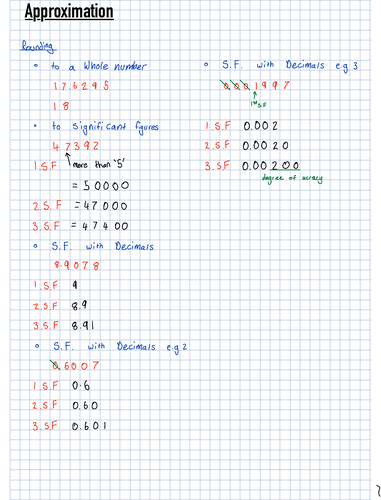 Approximation
Rounding
to a whole number
17.6295
18
to significant figures
47392
1.S.F more than '5'
= 50000
2.S.F = 47000
3.S.F = 47400
S.F. with Decimals
8.9078
1.S.F 9
2.S.F 8.9
3.S.F 8.91
S.F. with Decimals e.g 2
0.6007
1.S.F 0.6
2.S.F 0.60
3.S.F 0.601
S.F. with Decimals e.g 3
0.001997
1st S.F
1.S.F 0.002
2.S.F 0.0020
3.S.F 0.00200
degree of